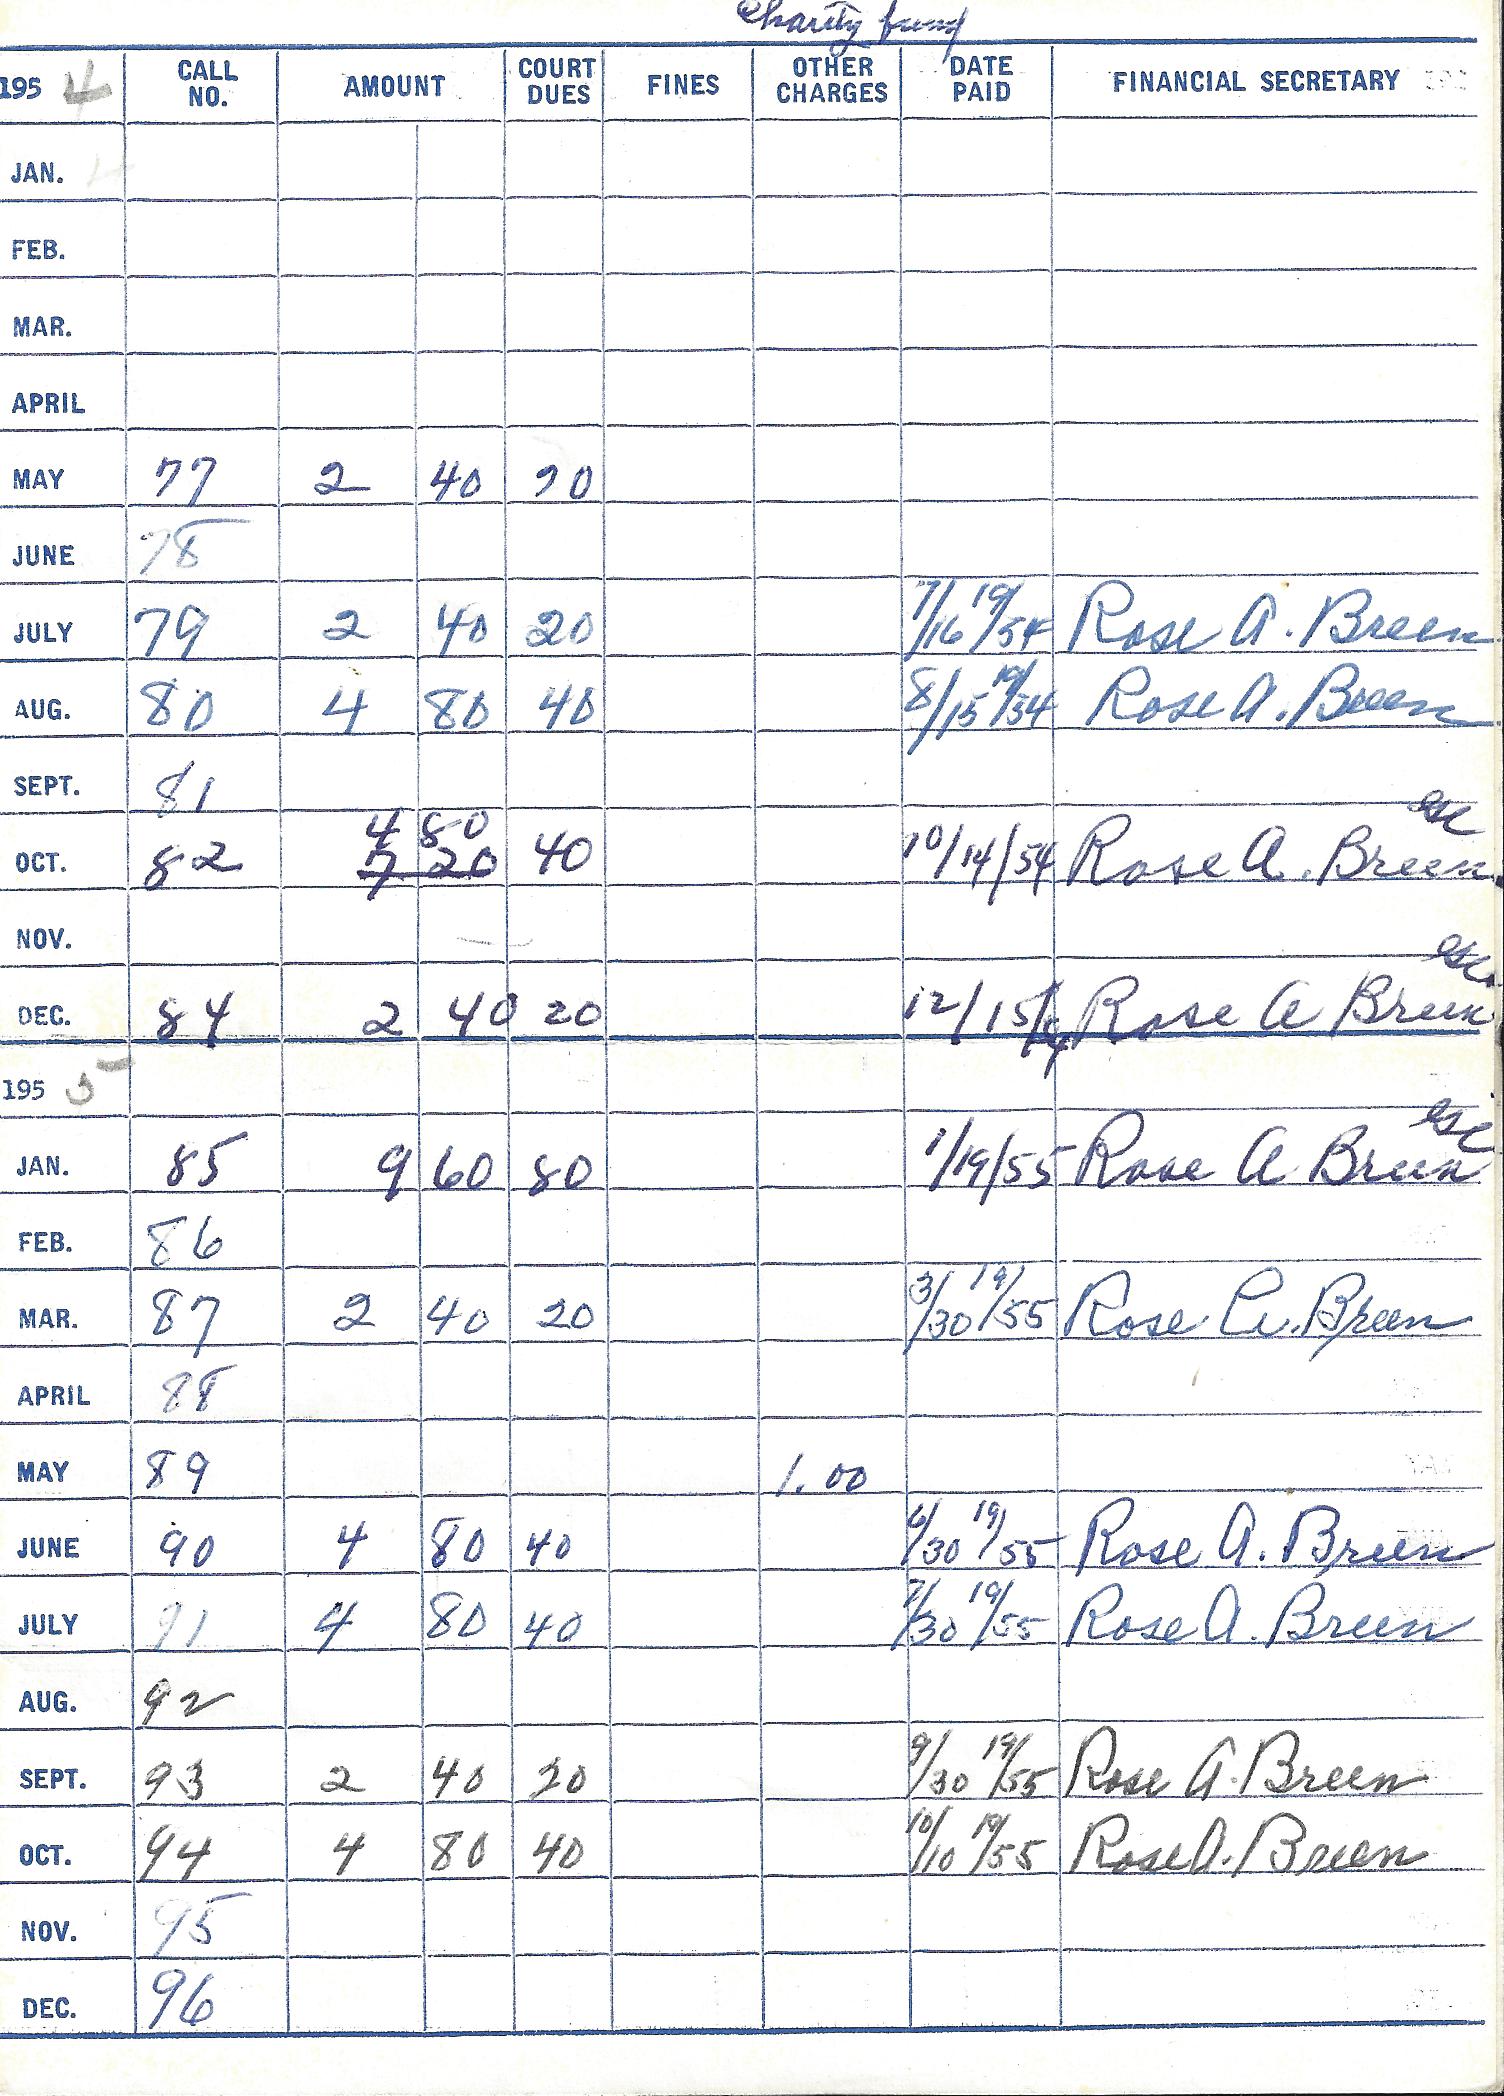 Charity fund
1954 CALL NO. AMOUNT COURT DUES FINES OTHER CHARGES DATE PAID FINANCIAL SECRETARY
JAN.
FEB.
MAR.
APRIL
MAY 77 2 40 20
JUNE 78
JULY 79 2 40 20 7/16 19/54 Rose A. Breen
AUG. 80 4 80 40 8/15 19/54 Rose A. Breen
SEPT. 81
4 80
OCT. 82 7 20 40 10/14/54 Rose A. Breen
NOV.
DEC. 84 2 40 20 12/15/54 Rose A Breen
1955
JAN. 85 9 60 80 1/19/55 Rose A Breen
FEB. 86
MAR. 87 2 40 20 3/30 19/55 Rose A. Breen
APRIL 88
MAY 89 1.00
JUNE 90 4 80 40 6/30 19/55 Rose A. Breen
JULY 91 4 80 40 7/30 19/55 Rose A. Breen
AUG. 92
SEPT. 93 2 40 20 9/30 19/55 Rose A. Breen
OCT. 94 4 80 40 10/10 19/55 Rose A. Breen
NOV. 95
DEC. 96